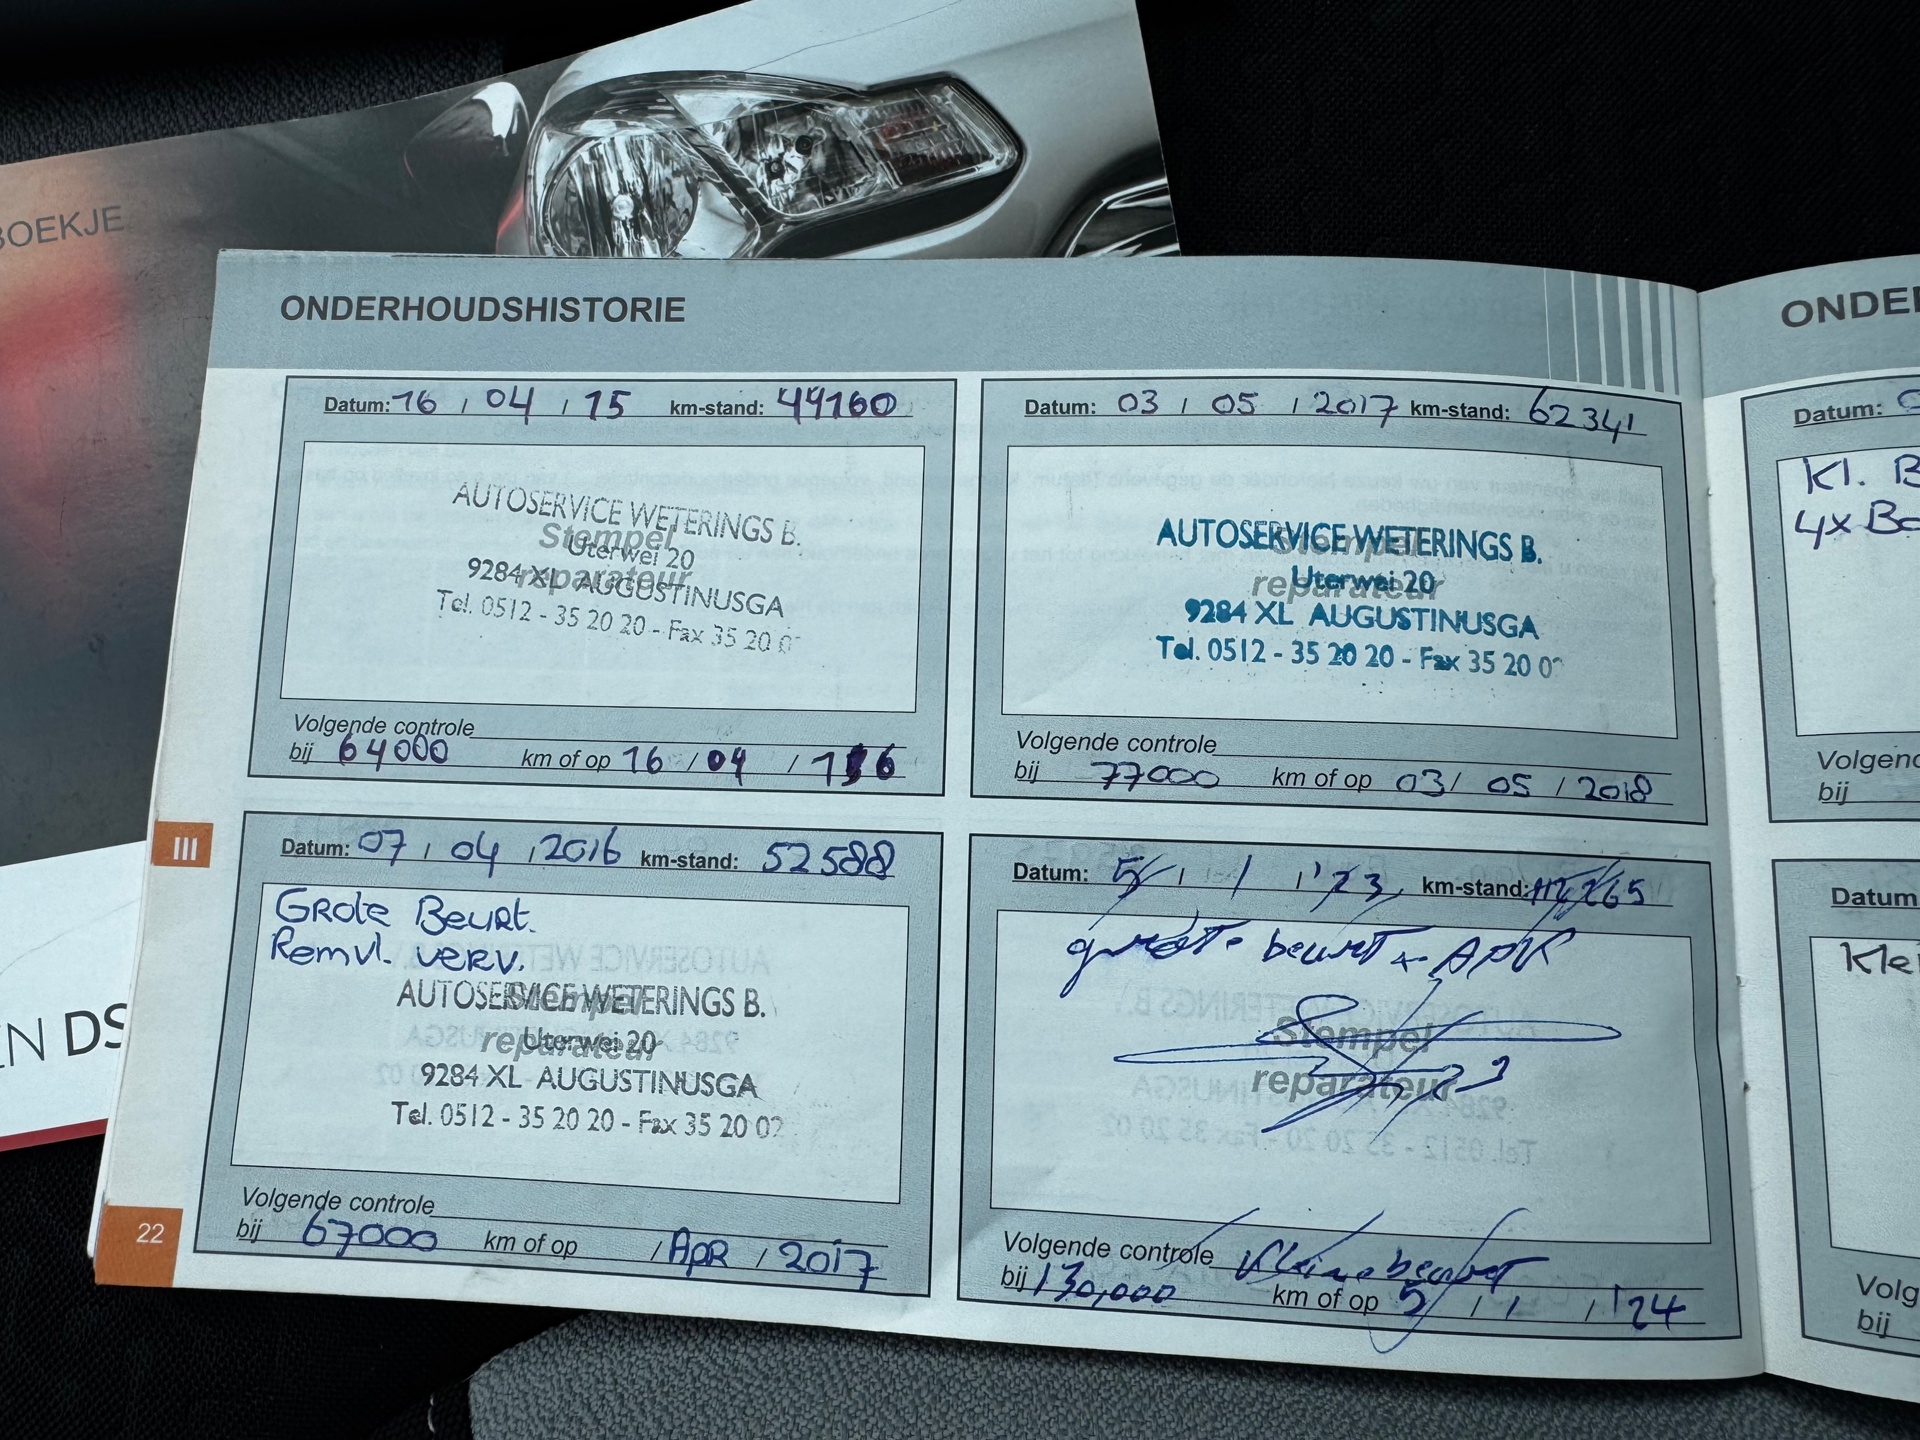 BOEKJE
EN DS
ONDERHOUDSHISTORIE
Datum: 16 / 04 / 15 km-stand: 49160
Stempel
reparateur
AUTOSERVICE WETERINGS B.
Uterwei 20
9284 XL AUGUSTINUSGA
Tel. 0512 - 35 20 20 - Fax 35 20 0
Volgende controle
bij 64000 km of op 16 / 04 / 16
Datum: 03 / 05 / 2017 km-stand: 62341
Stempel
reparateur
AUTOSERVICE WETERINGS B.
Uterwei 20
9284 XL AUGUSTINUSGA
Tel. 0512 - 35 20 20 - Fax 35 20 0
Volgende controle
bij 77000 km of op 03 / 05 / 2018
Datum: 07 / 04 / 2016 km-stand: 52588
Grote Beurt.
Remvl. verv.
Stempel
reparateur
AUTOSERVICE WETERINGS B.
Uterwei 20
9284 XL AUGUSTINUSGA
Tel. 0512 - 35 20 20 - Fax 35 20 02
Volgende controle
bij 67000 km of op / Apr / 2017
Datum: 5 / 1 / '23 km-stand:
grote beurt + APK
Stempel
reparateur
Volgende controle Kleine beurt
bij 130,000 km of op 5 / 1 / '24
III
22
ONDER
Datum:
Kl. B
4x Bo
Volgend
bij
Datum
Kle
Volg
bij